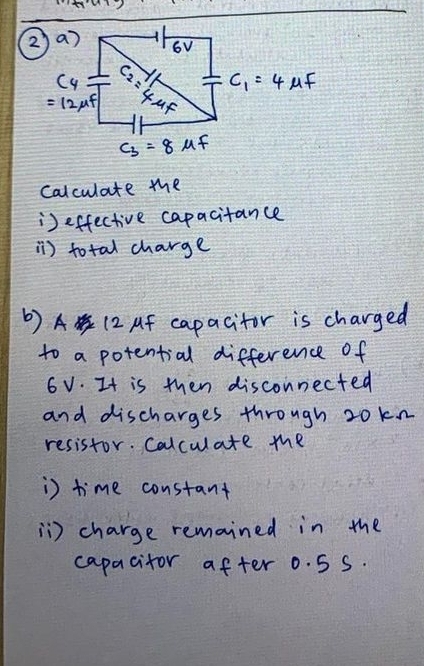 2 a)
6V
C4 = 12 μf
C2 = 4 μf
C1 = 4 μf
C3 = 8 μf
Calculate the
i) effective capacitance
ii) total charge
b) A 12 μf capacitor is charged
to a potential difference of
6 V. It is then disconnected
and discharges through 20 kΩ
resistor. Calculate the
i) time constant
ii) charge remained in the
capacitor after 0.5 s.